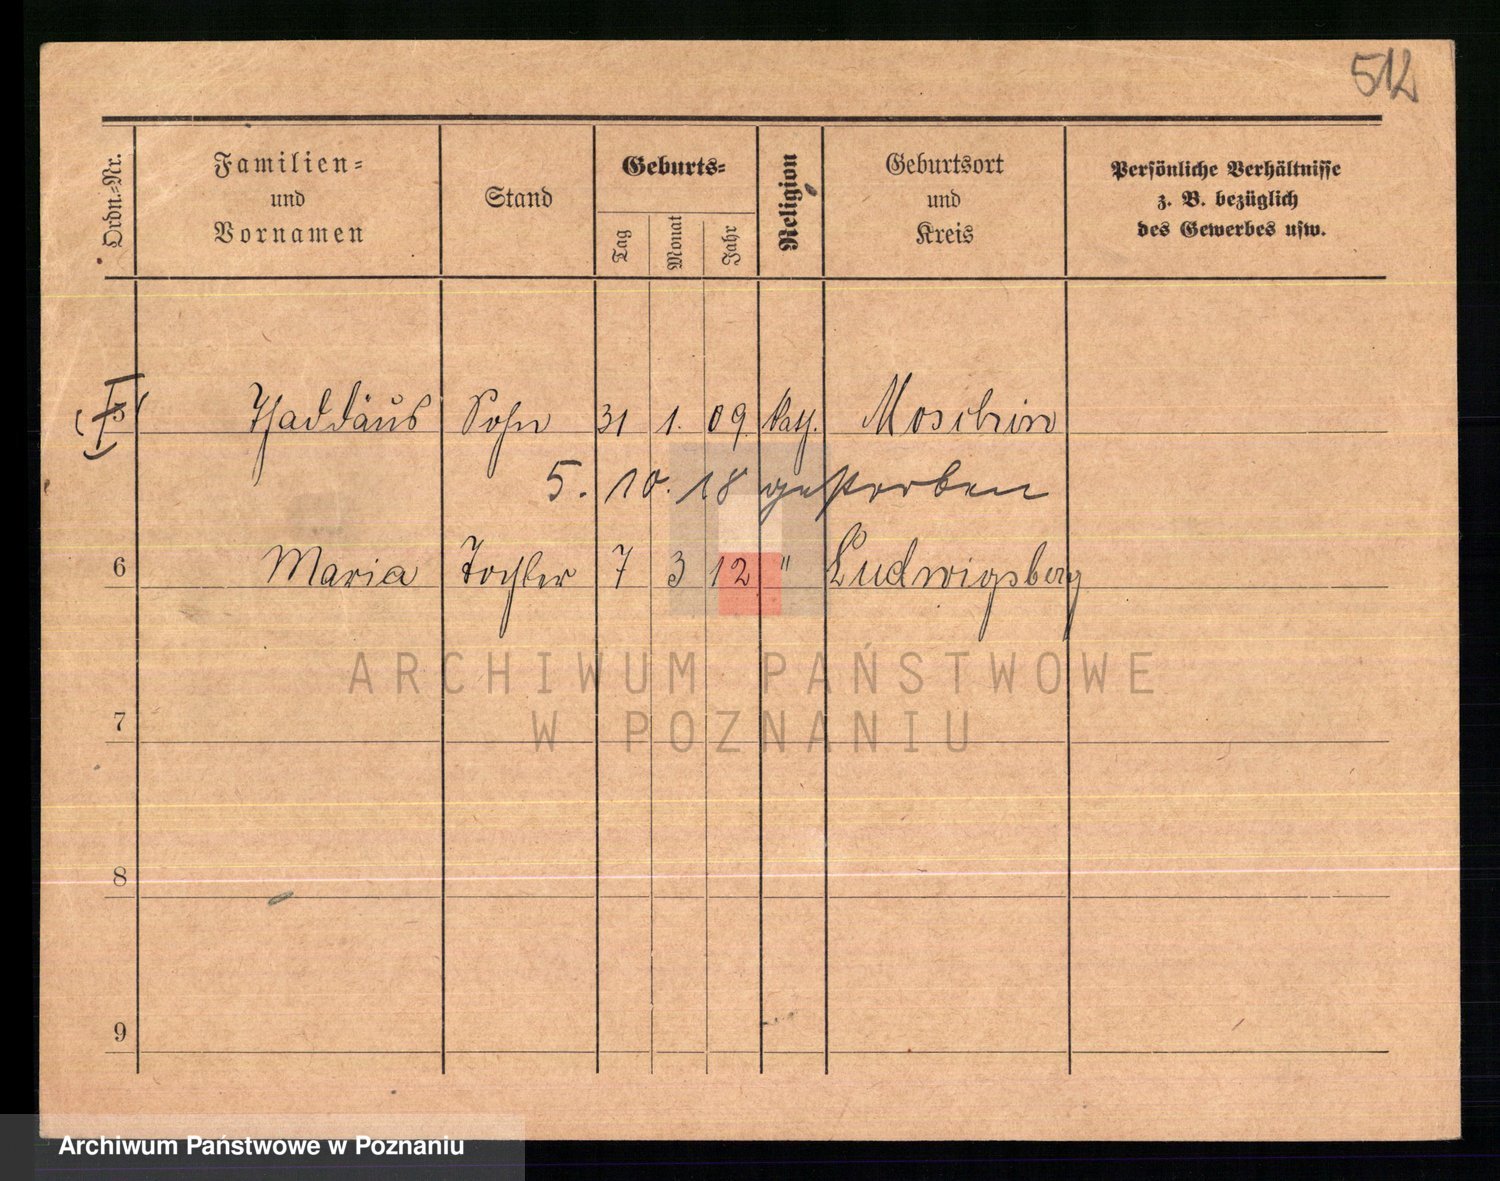 512
Ordn.=Nr.
Familien=
und
Vornamen
Stand
Geburts=
Tag
Monat
Jahr
Religion
Geburtsort
und
Kreis
Persönliche Verhältnisse
z. B. bezüglich
des Gewerbes usw.
5 Thaddäus Sohn 31 1. 09. kath. Moschin
5. 10. 18 gestorben
6 Maria Tochter 7 3 12 " Ludwigsberg
ARCHIWUM PAŃSTWOWE
W POZNANIU
7
8
9
Archiwum Państwowe w Poznaniu